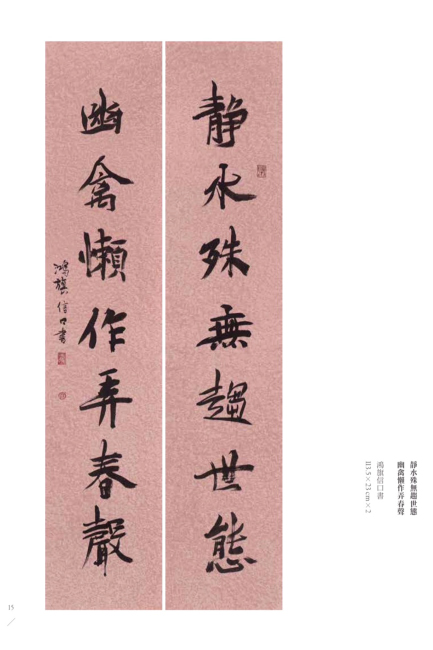 靜水殊無趨世態
幽禽懶作弄春聲
鴻旗信口書
靜水殊無趨世態
幽禽懶作弄春聲
鴻旗信口書
113.5×23 cm×2
15